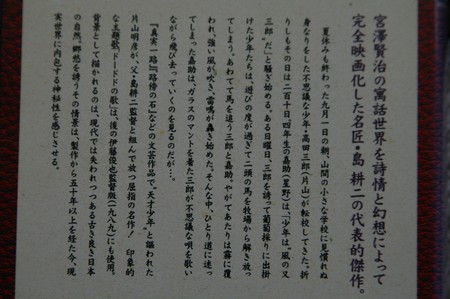 宮澤賢治の寓話世界を詩情と幻想によって
完全映画化した名匠・島 耕二の代表的傑作。
夏休みも終わった九月一日の朝、山間の小さな学校に見慣れぬ
身なりをした不思議な少年・高田三郎(片山)が転校してきた。折
りしもその日は二百十日。四年生の嘉助(星野)は、「少年は"風の又
三郎"だ」と騒ぎ始める。ある日曜日、三郎を誘って葡萄採りに出掛
けた少年たちは、遊びの度が過ぎて二頭の馬を牧場から解き放っ
てしまう。あわてて馬を追う三郎と嘉助。やがてあたりは霧に覆
われ、強い風が吹き、雷鳴が轟き始めた。そんな中、ひとり道に迷っ
てしまった嘉助は、ガラスのマントを着た三郎が不思議な唄を歌い
ながら飛び去っていくのを見るのだが…。
『真実一路』『路傍の石』などの文芸作品で"天才少年"と謳われた
片山明彦が、父・島耕二監督と組んで放つ屈指の名作! 印象的
な主題歌「ドードドの歌」は、後の伊藤俊也監督版(一九八九)にも使用。
背景として描かれるのは、現代では失われつつある古き良き日本
の自然。郷愁を誘うその情景は、製作から五十年以上を経た今、現
実世界に内包する神秘性を感じさせる。